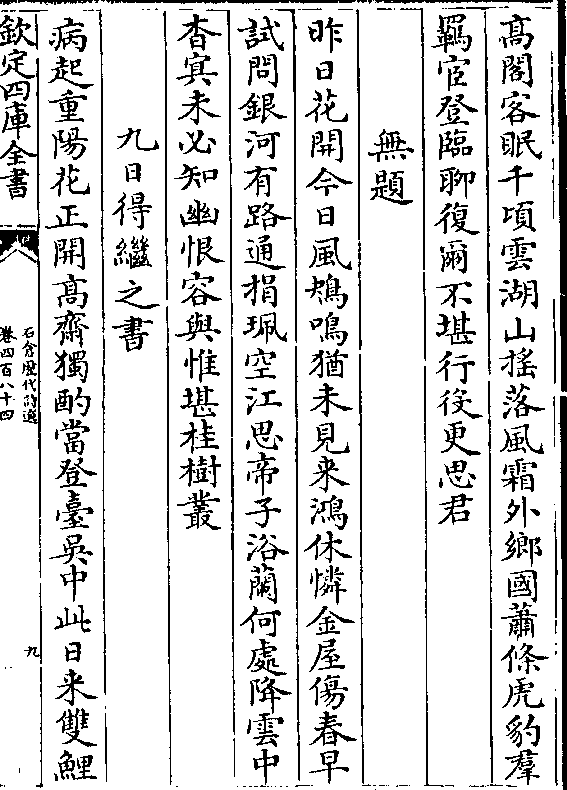 髙閣客眠千頃雲湖山揺落風霜外鄉國蕭條虎豹羣
羈宦登臨聊復爾不堪行役更思君
無題
昨日花開今日風鴂鳴猶未見来鴻休憐金屋傷春早
試問銀河有路通捐珮空江思帝子浴蘭何處降雲中
杳㝠未必知幽恨容與惟堪桂樹叢
九日得繼之書
病起重陽花正開髙齋獨酌當登臺吳中此日来雙鯉
欽定四庫全書
石倉歴代詩選
卷四百八十四
九